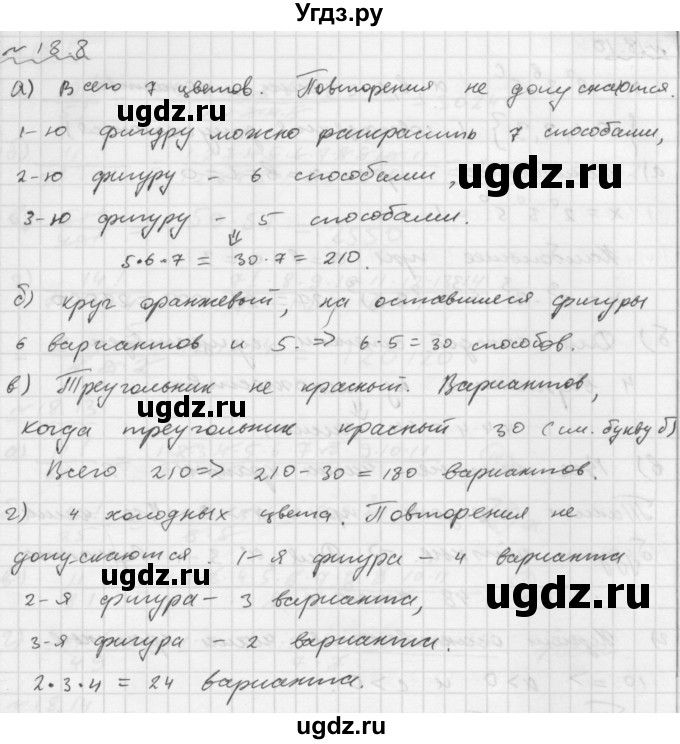 Угдз.ру
№ 18.8
а) Всего 7 цветов. Повторения не допускаются.
1-ю фигуру можно раскрасить 7 способами,
ugdz.ru ugdz.ru
2-ю фигуру – 6 способами,
3-ю фигуру – 5 способами.
⇓
5·6·7 = 30·7 = 210.
б) круг оранжевый, на оставшиеся фигуры
ugdz.ru
6 вариантов и 5. => 6·5 = 30 способов.
в) Треугольник не красный. Вариантов,
ugdz.ru
когда треугольник красный 30 (см. букву б)
Всего 210 => 210 – 30 = 180 вариантов.
г) 4 холодных цвета. Повторения не
допускаются. 1-я фигура – 4 варианта
ugdz.ru ugdz.ru
2-я фигура – 3 варианта,
3-я фигура – 2 варианта.
2·3·4 = 24 варианта.
ugdz.ru